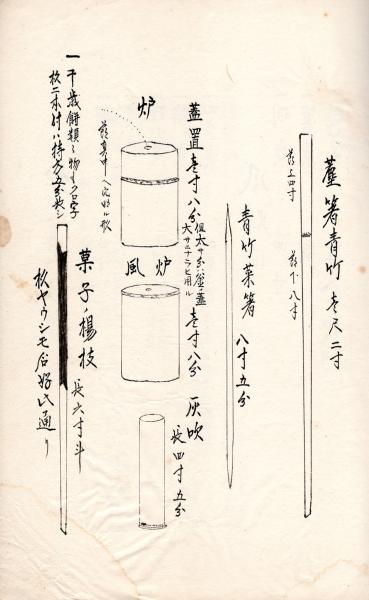 蓋箸青竹 壱尺二寸
節上四寸
節下八寸
青竹菜箸 八寸五分
蓋置 壱寸八分
但太サ分ハ釜ノ蓋
大サニナラヒ用ル
炉
節真中へ穴明ル形
風炉 壱寸八分
灰吹 長四寸五分
菓子ノ楊枝 長六寸斗
一 干菓餅類ノ物
杉二本付ハ持方五分
杉ヤウシモ右好此通り